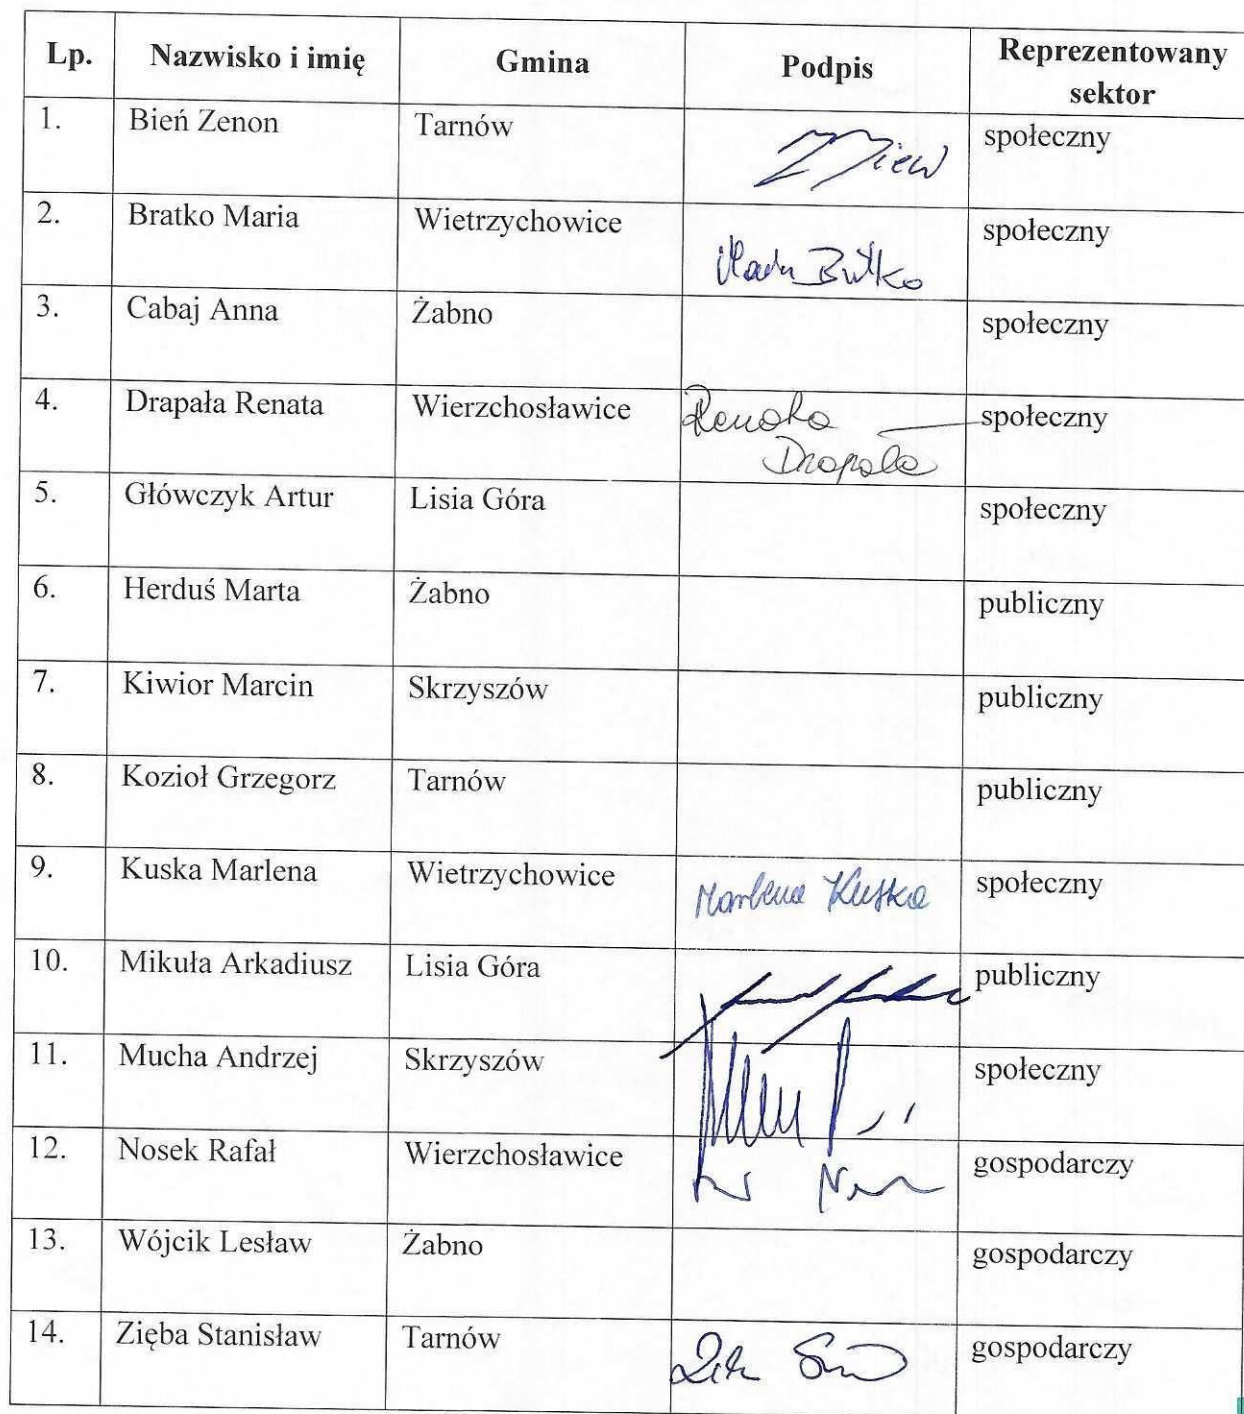 Lp. Nazwisko i imię Gmina Podpis Reprezentowany sektor
1. Bień Zenon Tarnów społeczny
2. Bratko Maria Wietrzychowice społeczny
3. Cabaj Anna Żabno społeczny
4. Drapała Renata Wierzchosławice Renata Drapała społeczny
5. Główczyk Artur Lisia Góra społeczny
6. Herduś Marta Żabno publiczny
7. Kiwior Marcin Skrzyszów publiczny
8. Kozioł Grzegorz Tarnów publiczny
9. Kuska Marlena Wietrzychowice Marlena Kuska społeczny
10. Mikuła Arkadiusz Lisia Góra publiczny
11. Mucha Andrzej Skrzyszów społeczny
12. Nosek Rafał Wierzchosławice gospodarczy
13. Wójcik Lesław Żabno gospodarczy
14. Zięba Stanisław Tarnów gospodarczy